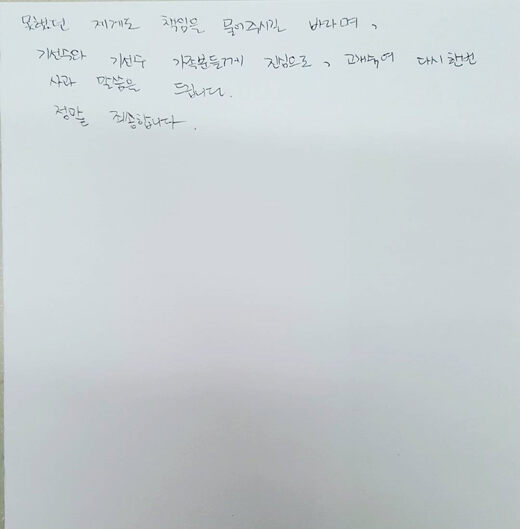 못했던 제게도 책임을 물어주시길 바라며,
기선수와 기선수 가족분들에게 진심으로, 고개숙여 다시한번
사과 말씀을 드립니다.
정말 죄송합니다.